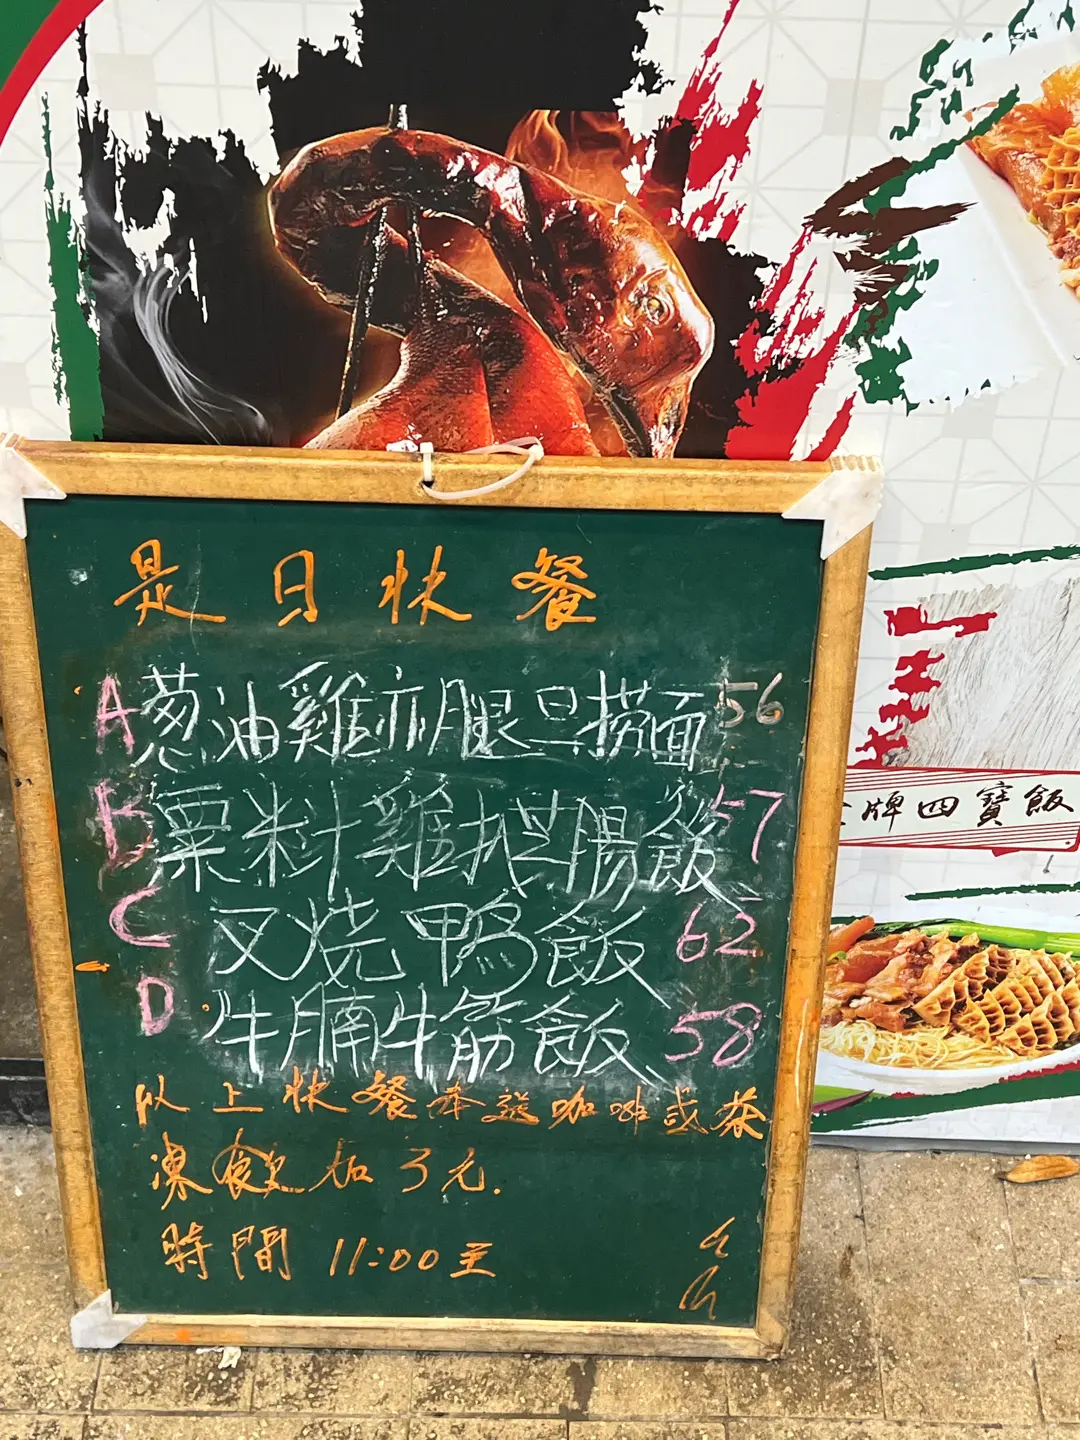 是日快餐
A 葱油雞亦腿旦撈面 56
B 粟米汁雞扒旦腸飯 57
C 叉燒鴨飯 62
D 牛腩牛筋飯 58
以上快餐奉送咖啡或茶
凍飲加3元.
時間 11:00至
牌四寶飯